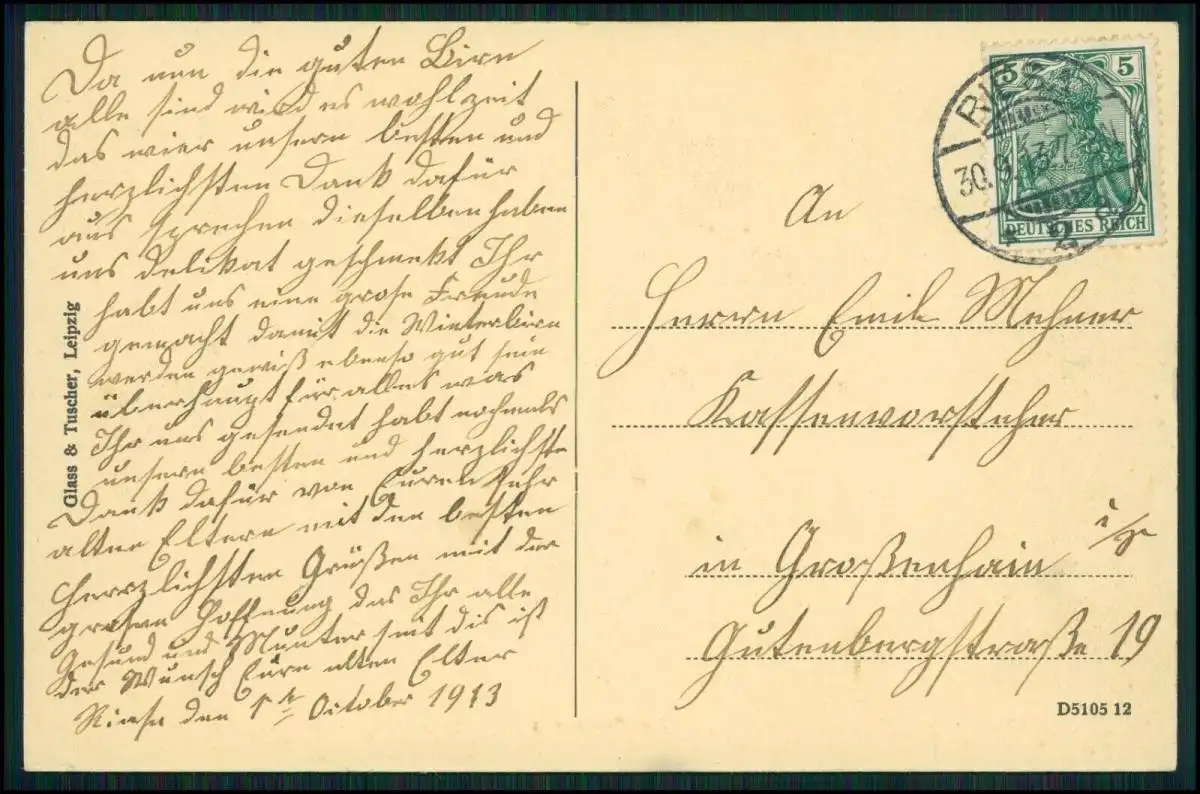 Da nun die guten Birn
alle sind wird es wohlzeit
das wier unsern besten und
herzlichsten Dank dafür
aus sprechen dieselben haben
uns delikat geschmekt Ihr
habt uns eine grose Freude
gemacht damit die Winterbirn
werden gewiß ebenso gut sein
überhaupt für alles was
Ihr uns gesendet habt nochmals
unsern besten und herzlichste
Dank dafür von Euren
alten Eltern mit den besten
herrzlichsten Grüßen mit der
grosen Hoffnung das Ihr alle
Gesund und Munter seit dis ist
der Wunsch Eure alten Elter
Riesa den 1 October 1913
Glass & Tuscher, Leipzig
RIESA
30.9.13
5 5
DEUTSCHES REICH
An
Herrn Emil Mehner
Kassenvorsteher
in Großenhain i/S
Gutenbergstraße 19
D5105 12